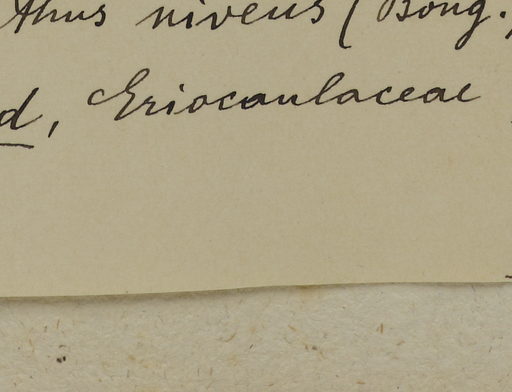 thus niveus (Bong.
d, Eriocaulaceae